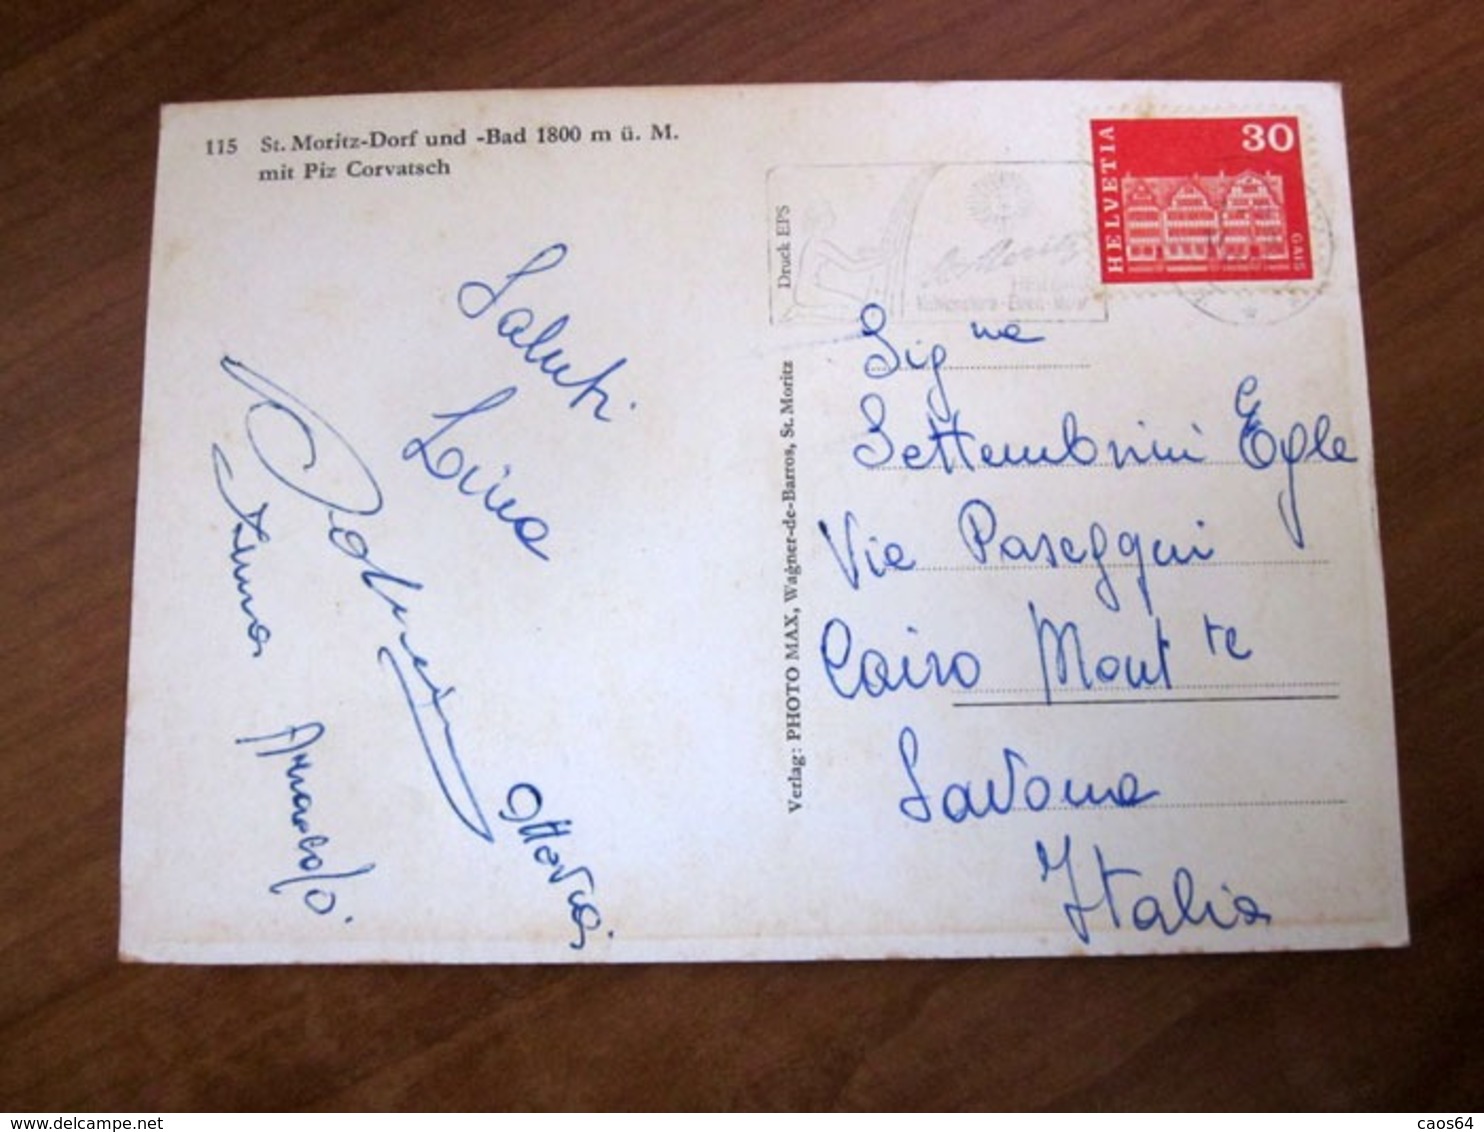 115 St. Moritz-Dorf und -Bad 1800 m ü. M.
mit Piz Corvatsch
HELVETIA
30
GAIS
Druck EPS
St. Moritz
Verlag: PHOTO MAX, Wagner-de-Barros, St. Moritz
Saluti
Lina
Arnaldo.
Ottavia
Sig na
Settembrini Egle
Via Paseggui
Cairo Mont te
Savona
Italia
delcampe.net
caos64